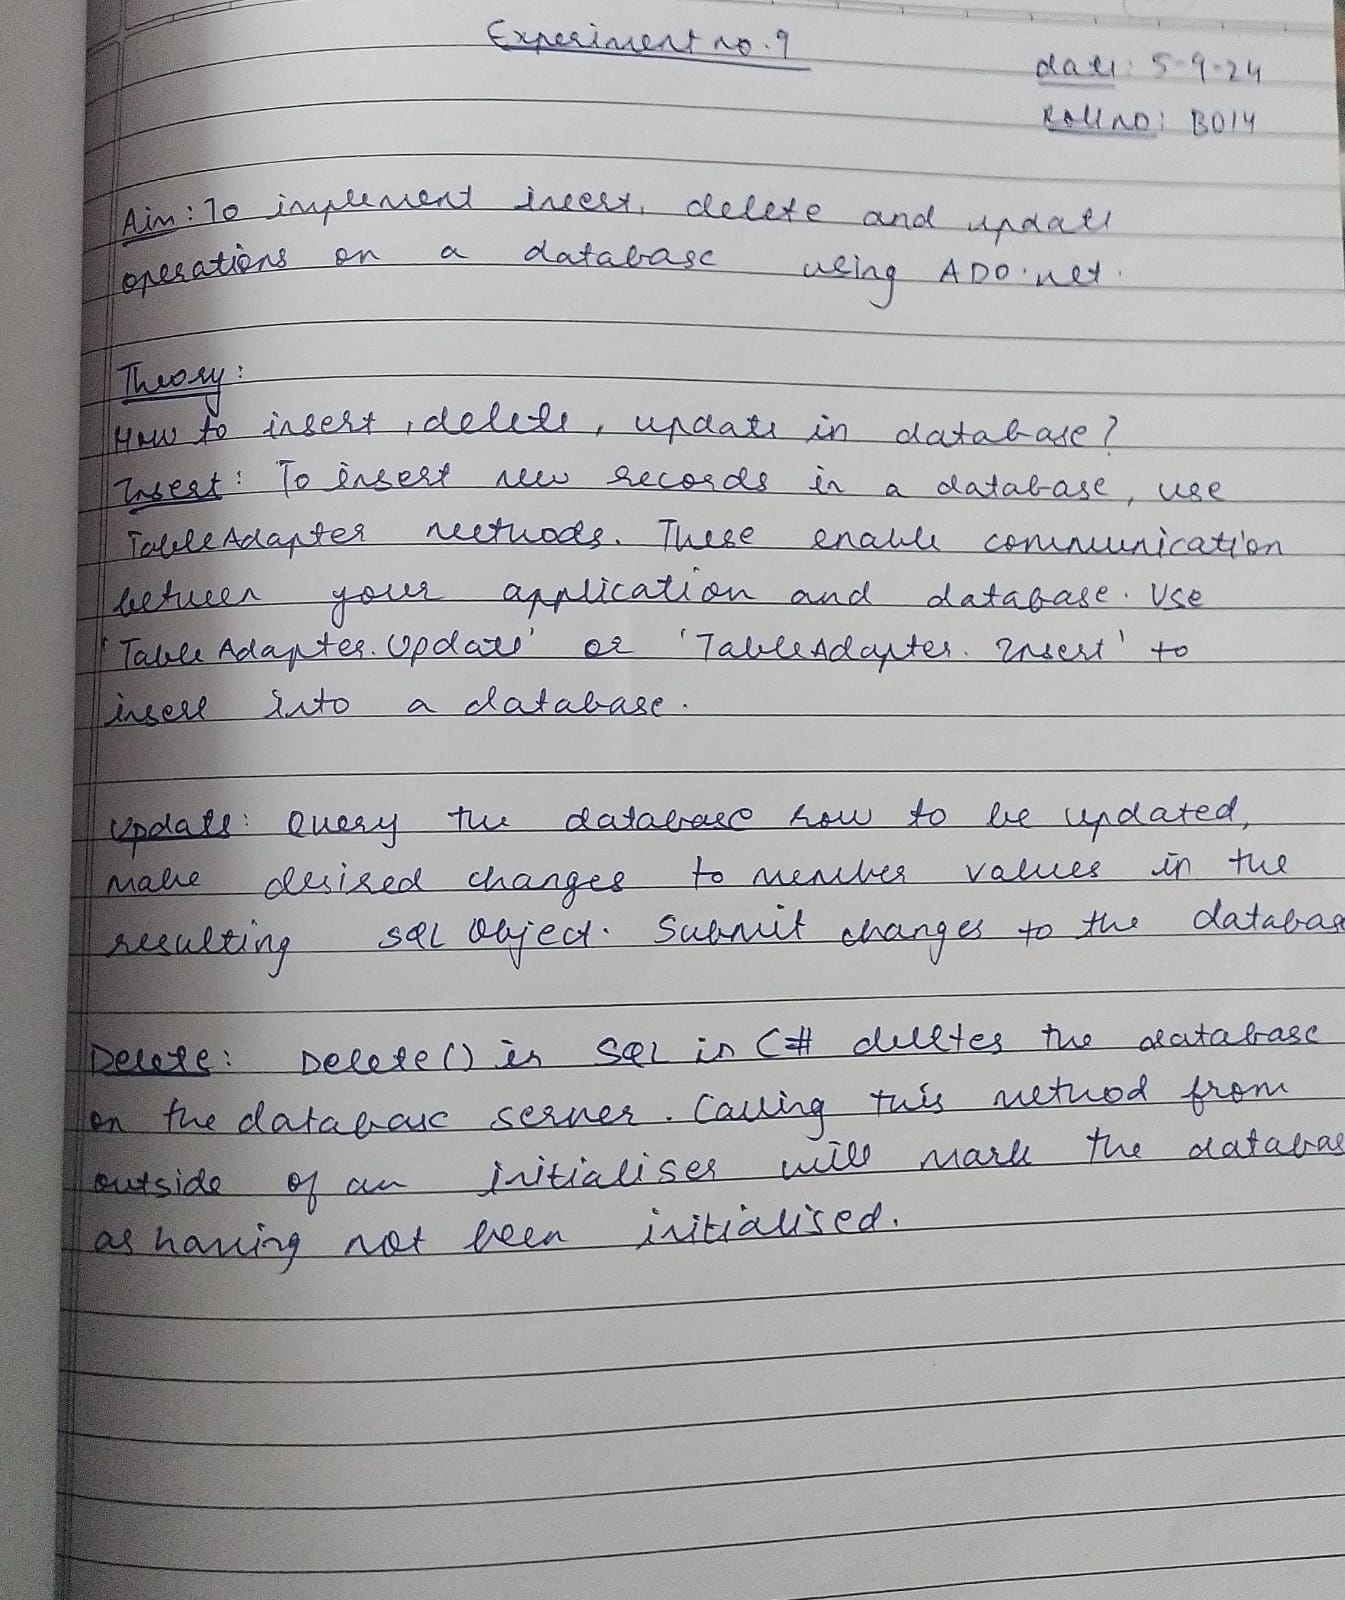 Experiment no. 9
date: 5-9-24
Roll no: B014
Aim: To implement insert, delete and update
operations on a database using ADO.net.
Theory:
How to insert, delete, update in database?
Insert: To insert new records in a database, use
TableAdapter methods. These enable communication
between your application and database. Use
'TableAdapter.Update' or 'TableAdapter.Insert' to
insert into a database.
Update: Query the database how to be updated,
make desired changes to member values in the
resulting SQL object. Submit changes to the databas
Delete: Delete() in SQL in C# deletes the database
on the database server. Calling this method from
outside of an initialiser will mark the databas
as having not been initialised.